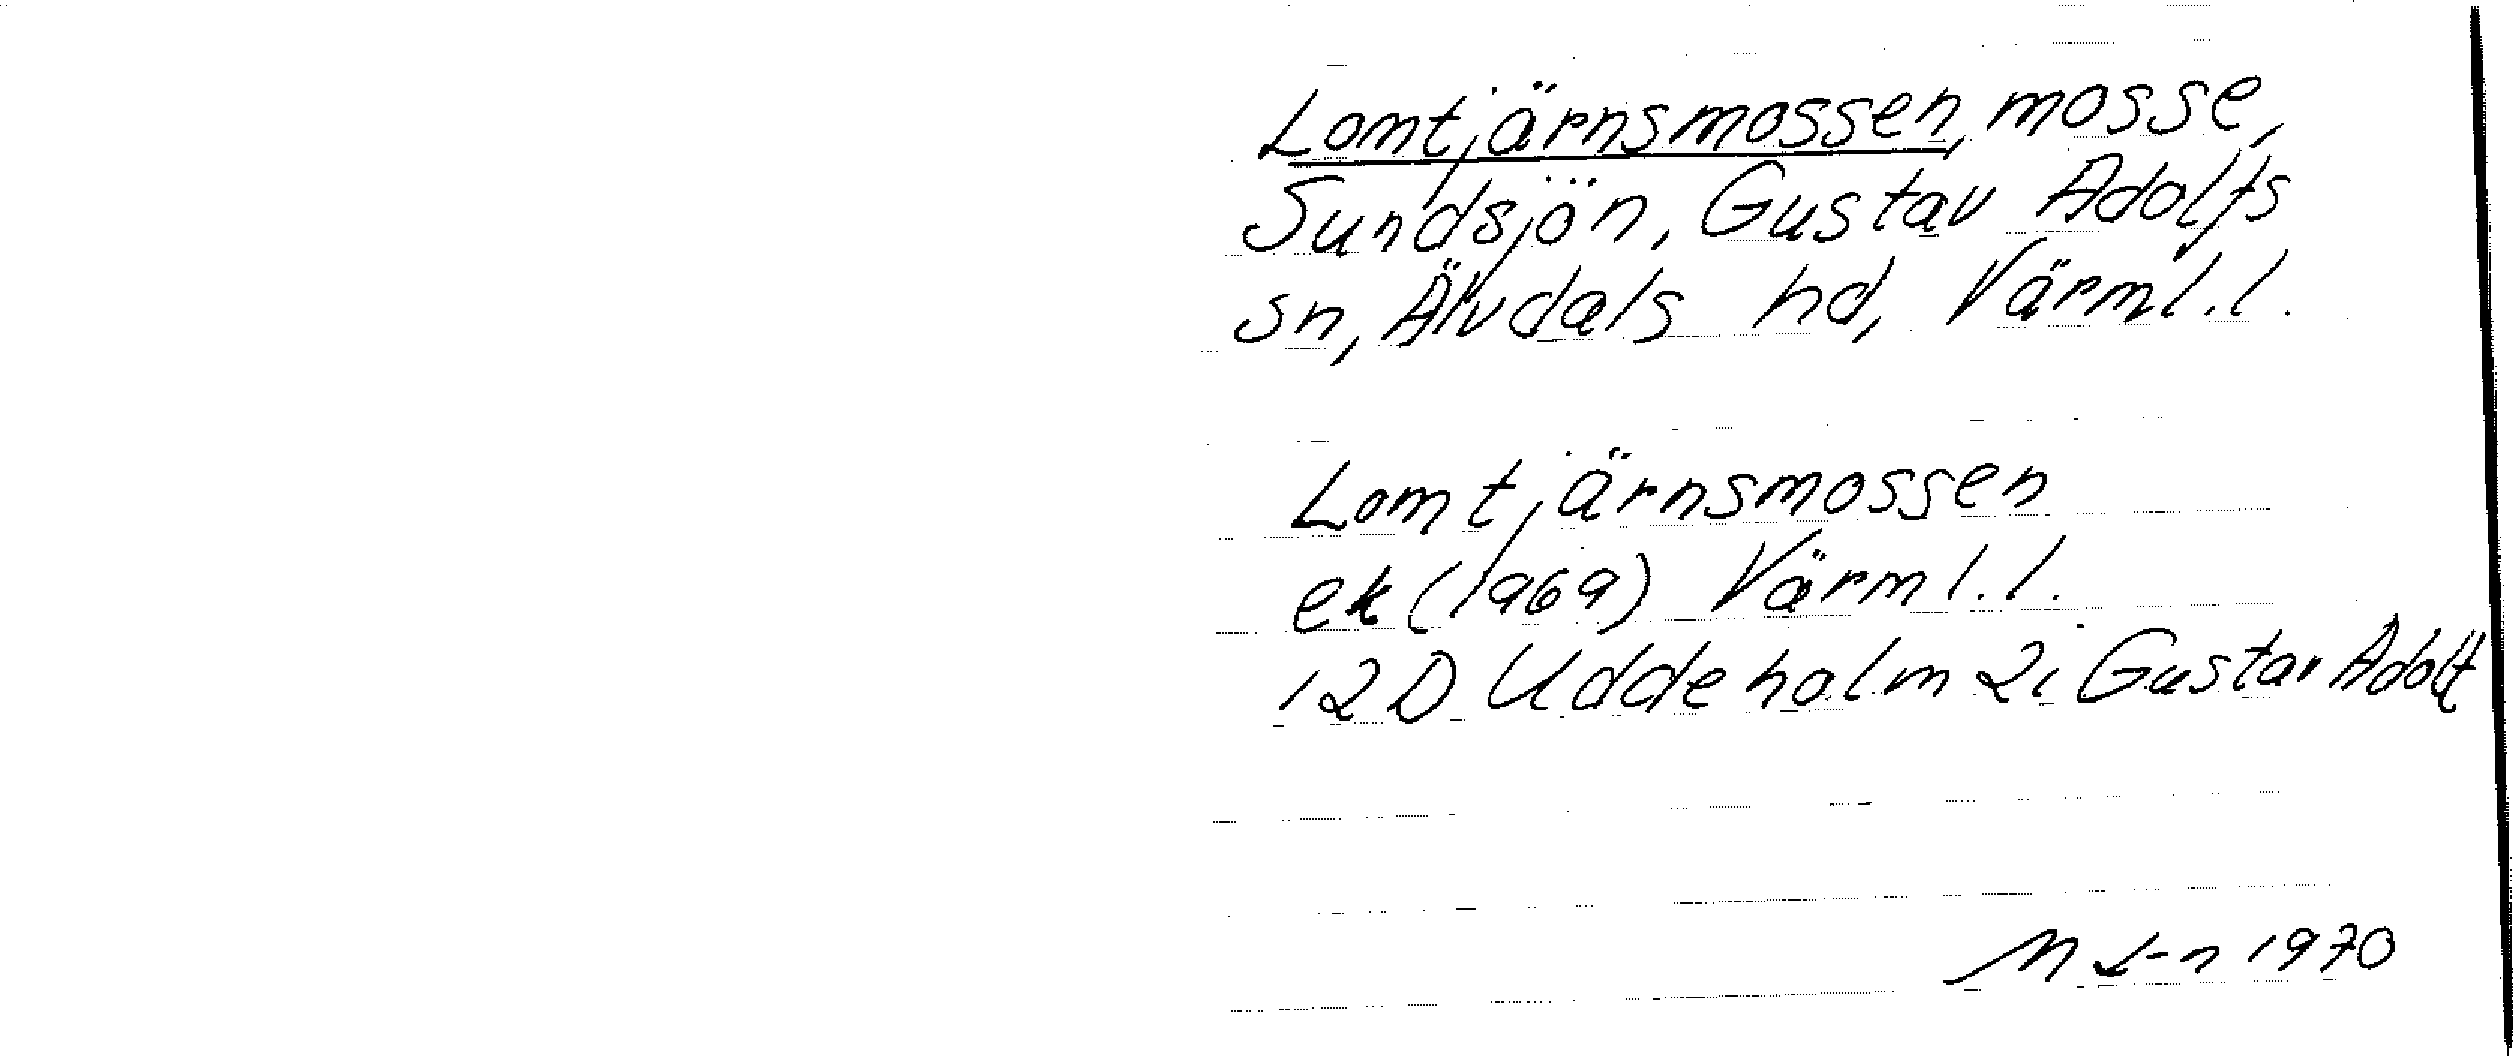 Lomtjärnsmossen, mosse,
Sundsjön, Gustav Adolfs
sn, Älvdals hd, Värml. l.
Lomtjärnsmossen
ek (1969) Värml. l.
12D Uddeholm 2i Gustav Adolf
M L-n 1970